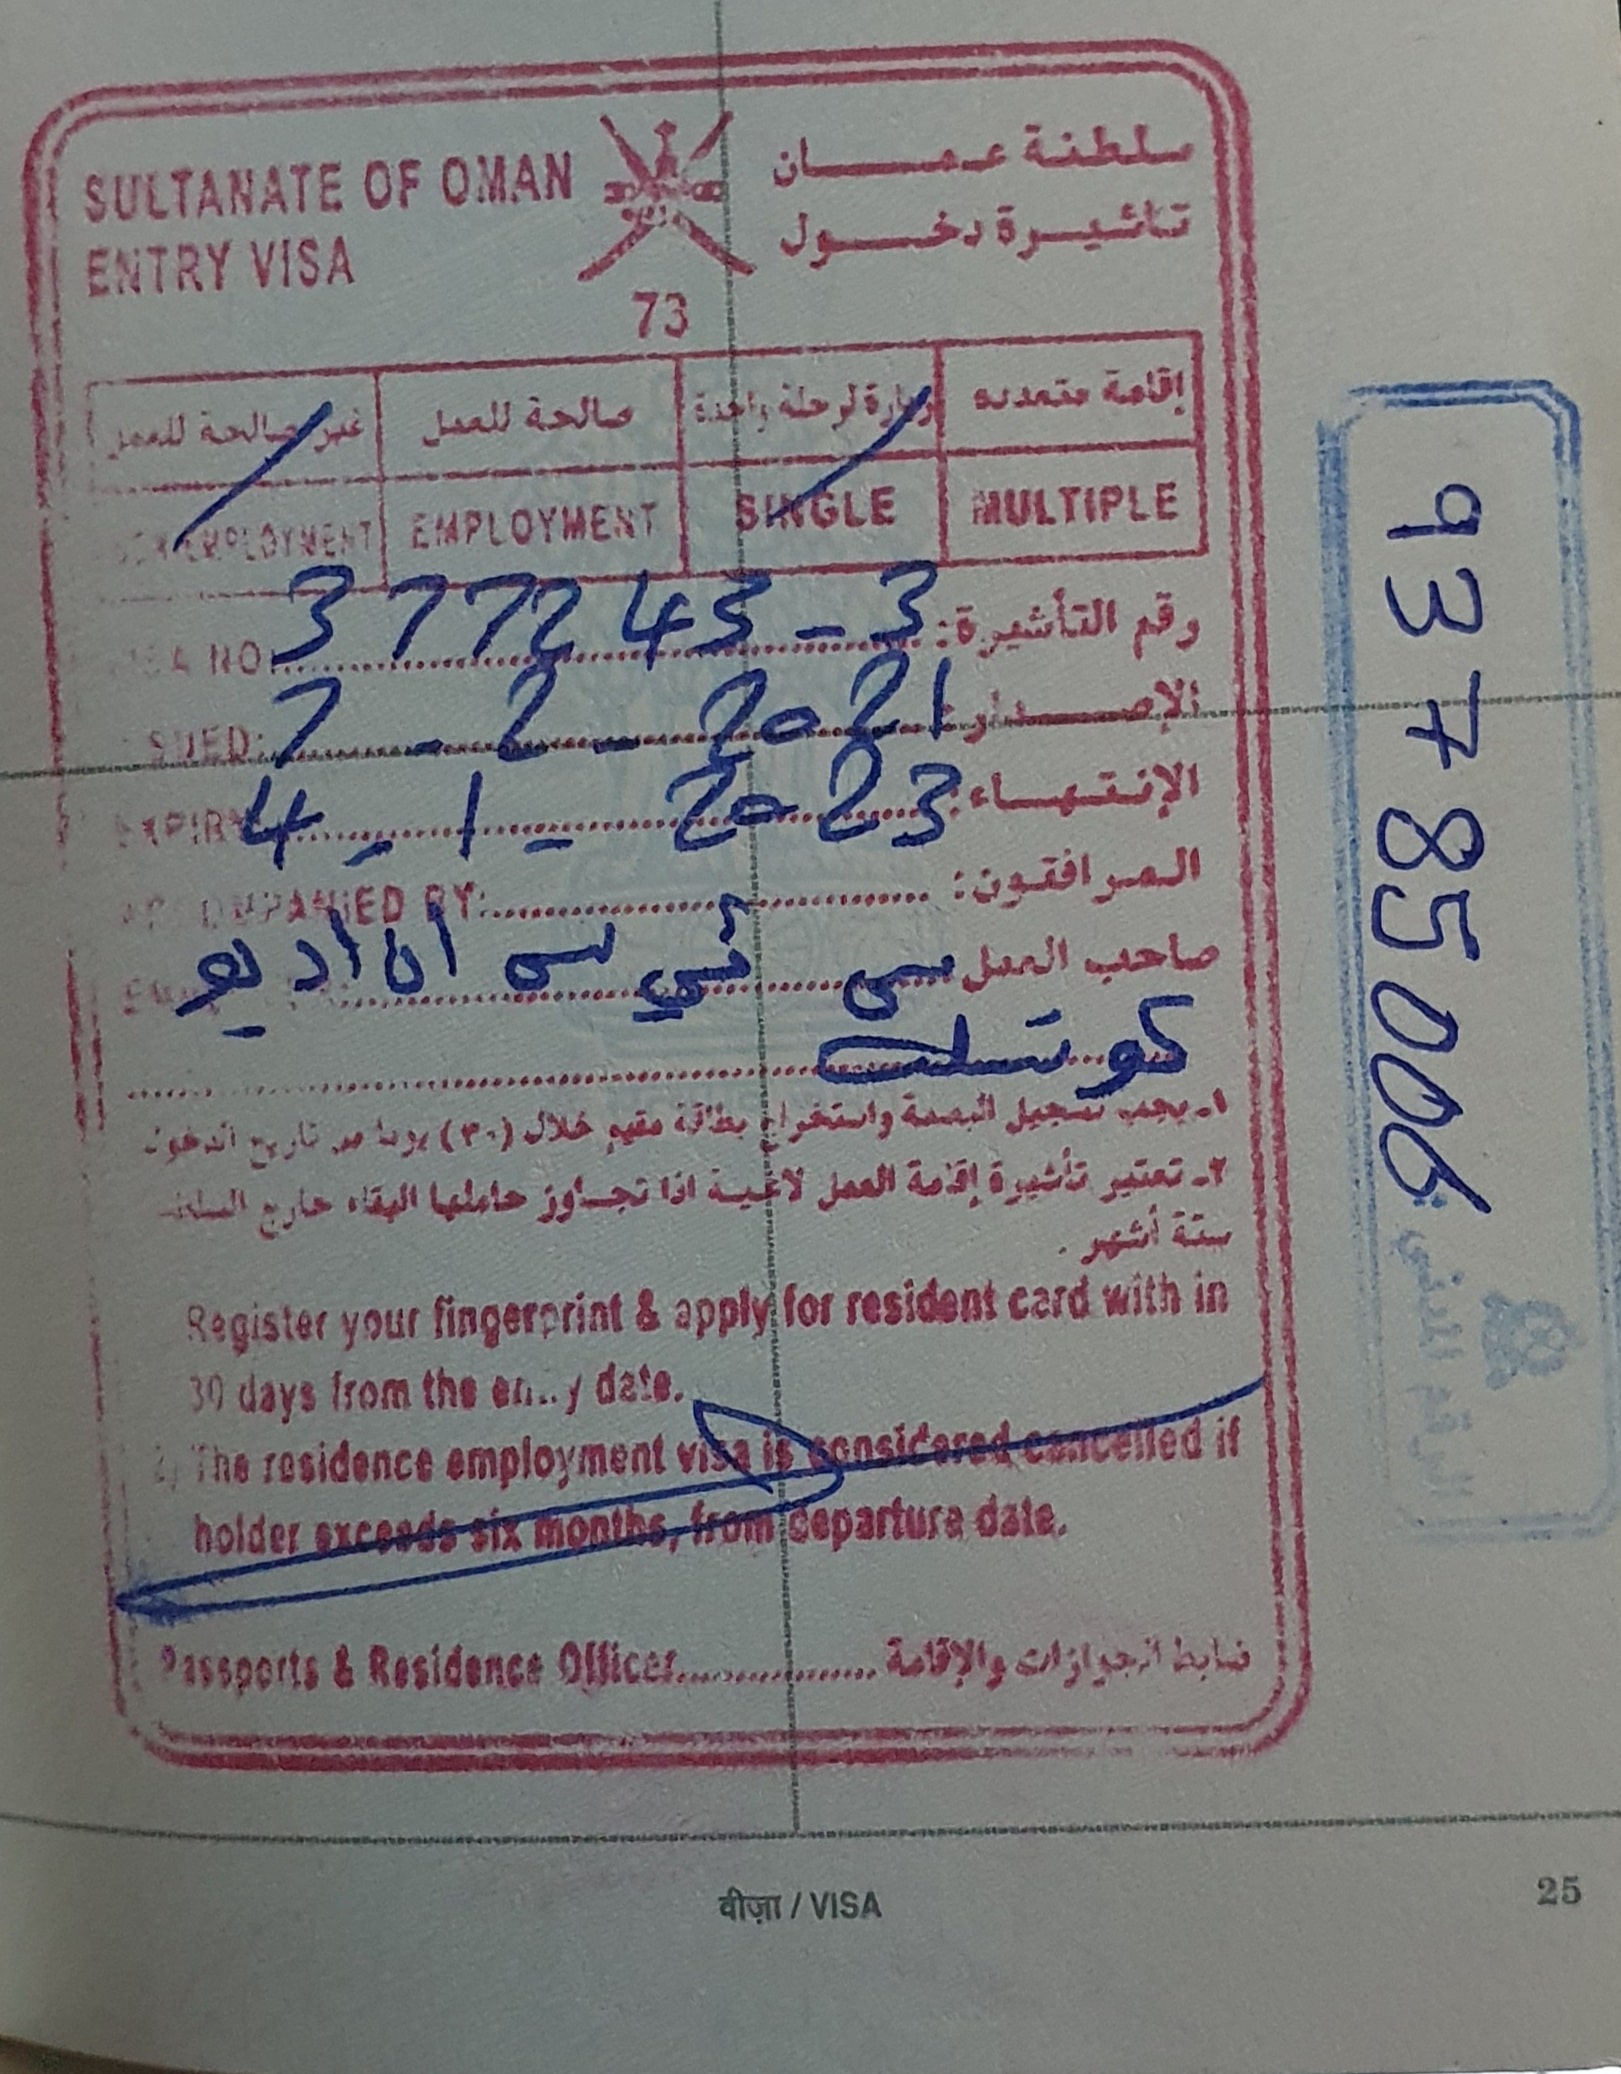 SULTANATE OF OMAN
ENTRY VISA
سلطنة عمان
تأشيرة دخول
73
غير صالحة للعمل صالحة للعمل زيارة لرحلة واحدة إقامة متعددة
EMPLOYMENT EMPLOYMENT SINGLE MULTIPLE
NO: 377243-3 رقم التأشيرة:
7-2-2021 الإصدار:
EXPIRY 4-1-2023 الإنتهاء:
ACCOMPANIED BY: المرافقون:
صاحب العمل سي تي سي ان اديو
١- يجب تسجيل البصمة واستخراج بطاقة مقيم خلال (٣٠) يوما من تاريخ الدخول
٢- تعتبر تأشيرة إقامة العمل لاغية اذا تجاوز حاملها البقاء خارج السلطنة
ستة أشهر .
Register your fingerprint & apply for resident card with in
30 days from the entry date.
2) The residence employment visa is considered cancelled if
holder exceeds six months, from departure date.
Passports & Residence Officer ضابط الجوازات والإقامة
93785006
الرقم المدني :
वीज़ा / VISA
25